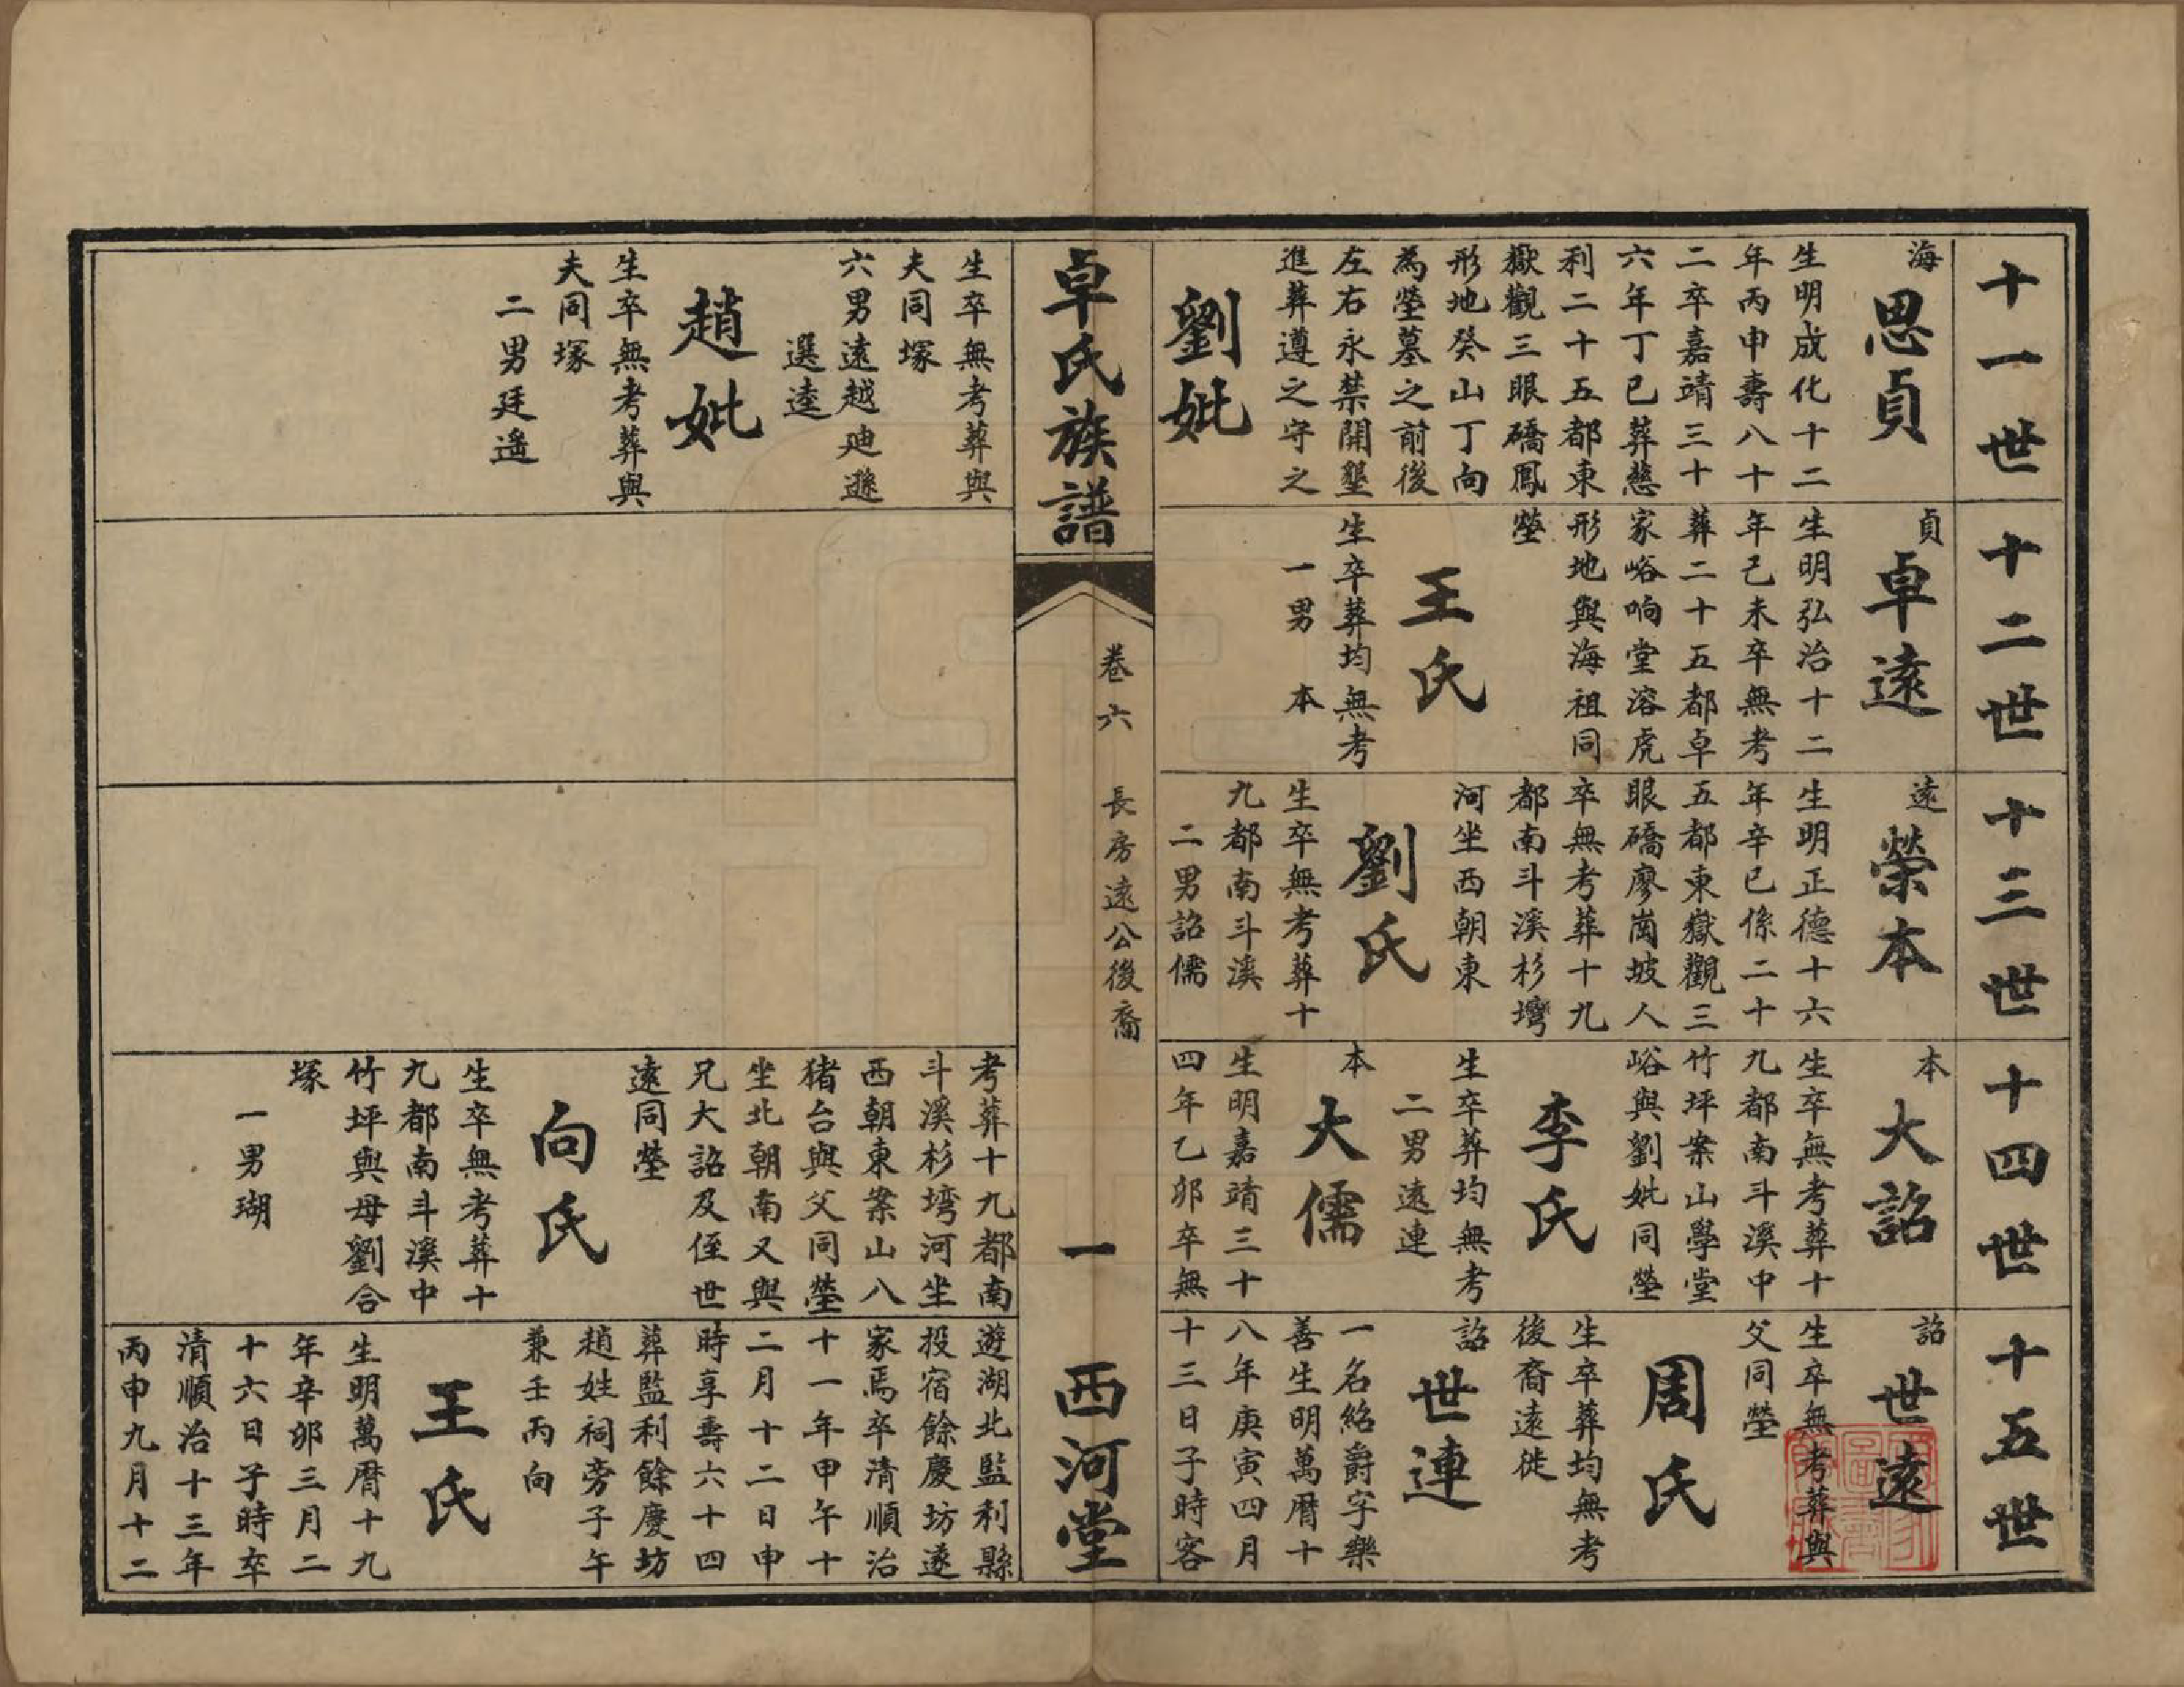 十一世
海
思貞
生明成化十二
年丙申壽八十
二卒嘉靖三十
六年丁巳葬慈
利二十五都東
嶽觀三眼礄鳳
形地癸山丁向
為塋墓之前後
左右永禁開墾
進葬遵之守之
劉妣
生卒無考葬與
夫同塚
六男遠越廸遜
選逵
趙妣
生卒無考葬與
夫同塚
二男廷遙
十二世
貞
卓遠
生明弘治十二
年己未卒無考
葬二十五都卓
家峪响堂溶虎
形地與海祖同
塋
王氏
生卒葬均無考
一男 本
十三世
遠
榮本
生明正德十六
年辛巳係二十
五都東嶽觀三
眼礄廖崗坡人
卒無考葬十九
都南斗溪杉塆
河坐西朝東
劉氏
生卒無考葬十
九都南斗溪
二男詔儒
十四世
本
大詔
生卒無考葬十
九都南斗溪中
竹坪案山學堂
峪與劉妣同塋
李氏
生卒葬均無考
二男遠連
本
大儒
生明嘉靖三十
四年乙卯卒無
考葬十九都南
斗溪杉塆河坐
西朝東案山八
猪台與父同塋
坐北朝南又與
兄大詔及侄世
遠同塋
向氏
生卒無考葬十
九都南斗溪中
竹坪與母劉合
塚
一男瑚
十五世
詔
世遠
生卒無考葬與
父同塋
周氏
生卒葬均無考
後裔遠徙
詔
世連
一名紹爵字樂
善生明萬曆十
八年庚寅四月
十三日子時客
遊湖北監利縣
投宿餘慶坊遂
家焉卒清順治
十一年甲午十
二月十二日申
時享壽六十四
葬監利餘慶坊
趙姓祠旁子午
兼壬丙向
王氏
生明萬曆十九
年辛卯三月二
十六日子時卒
清順治十三年
丙申九月十二
卓氏族譜
卷六 長房遠公後裔
一
西河堂